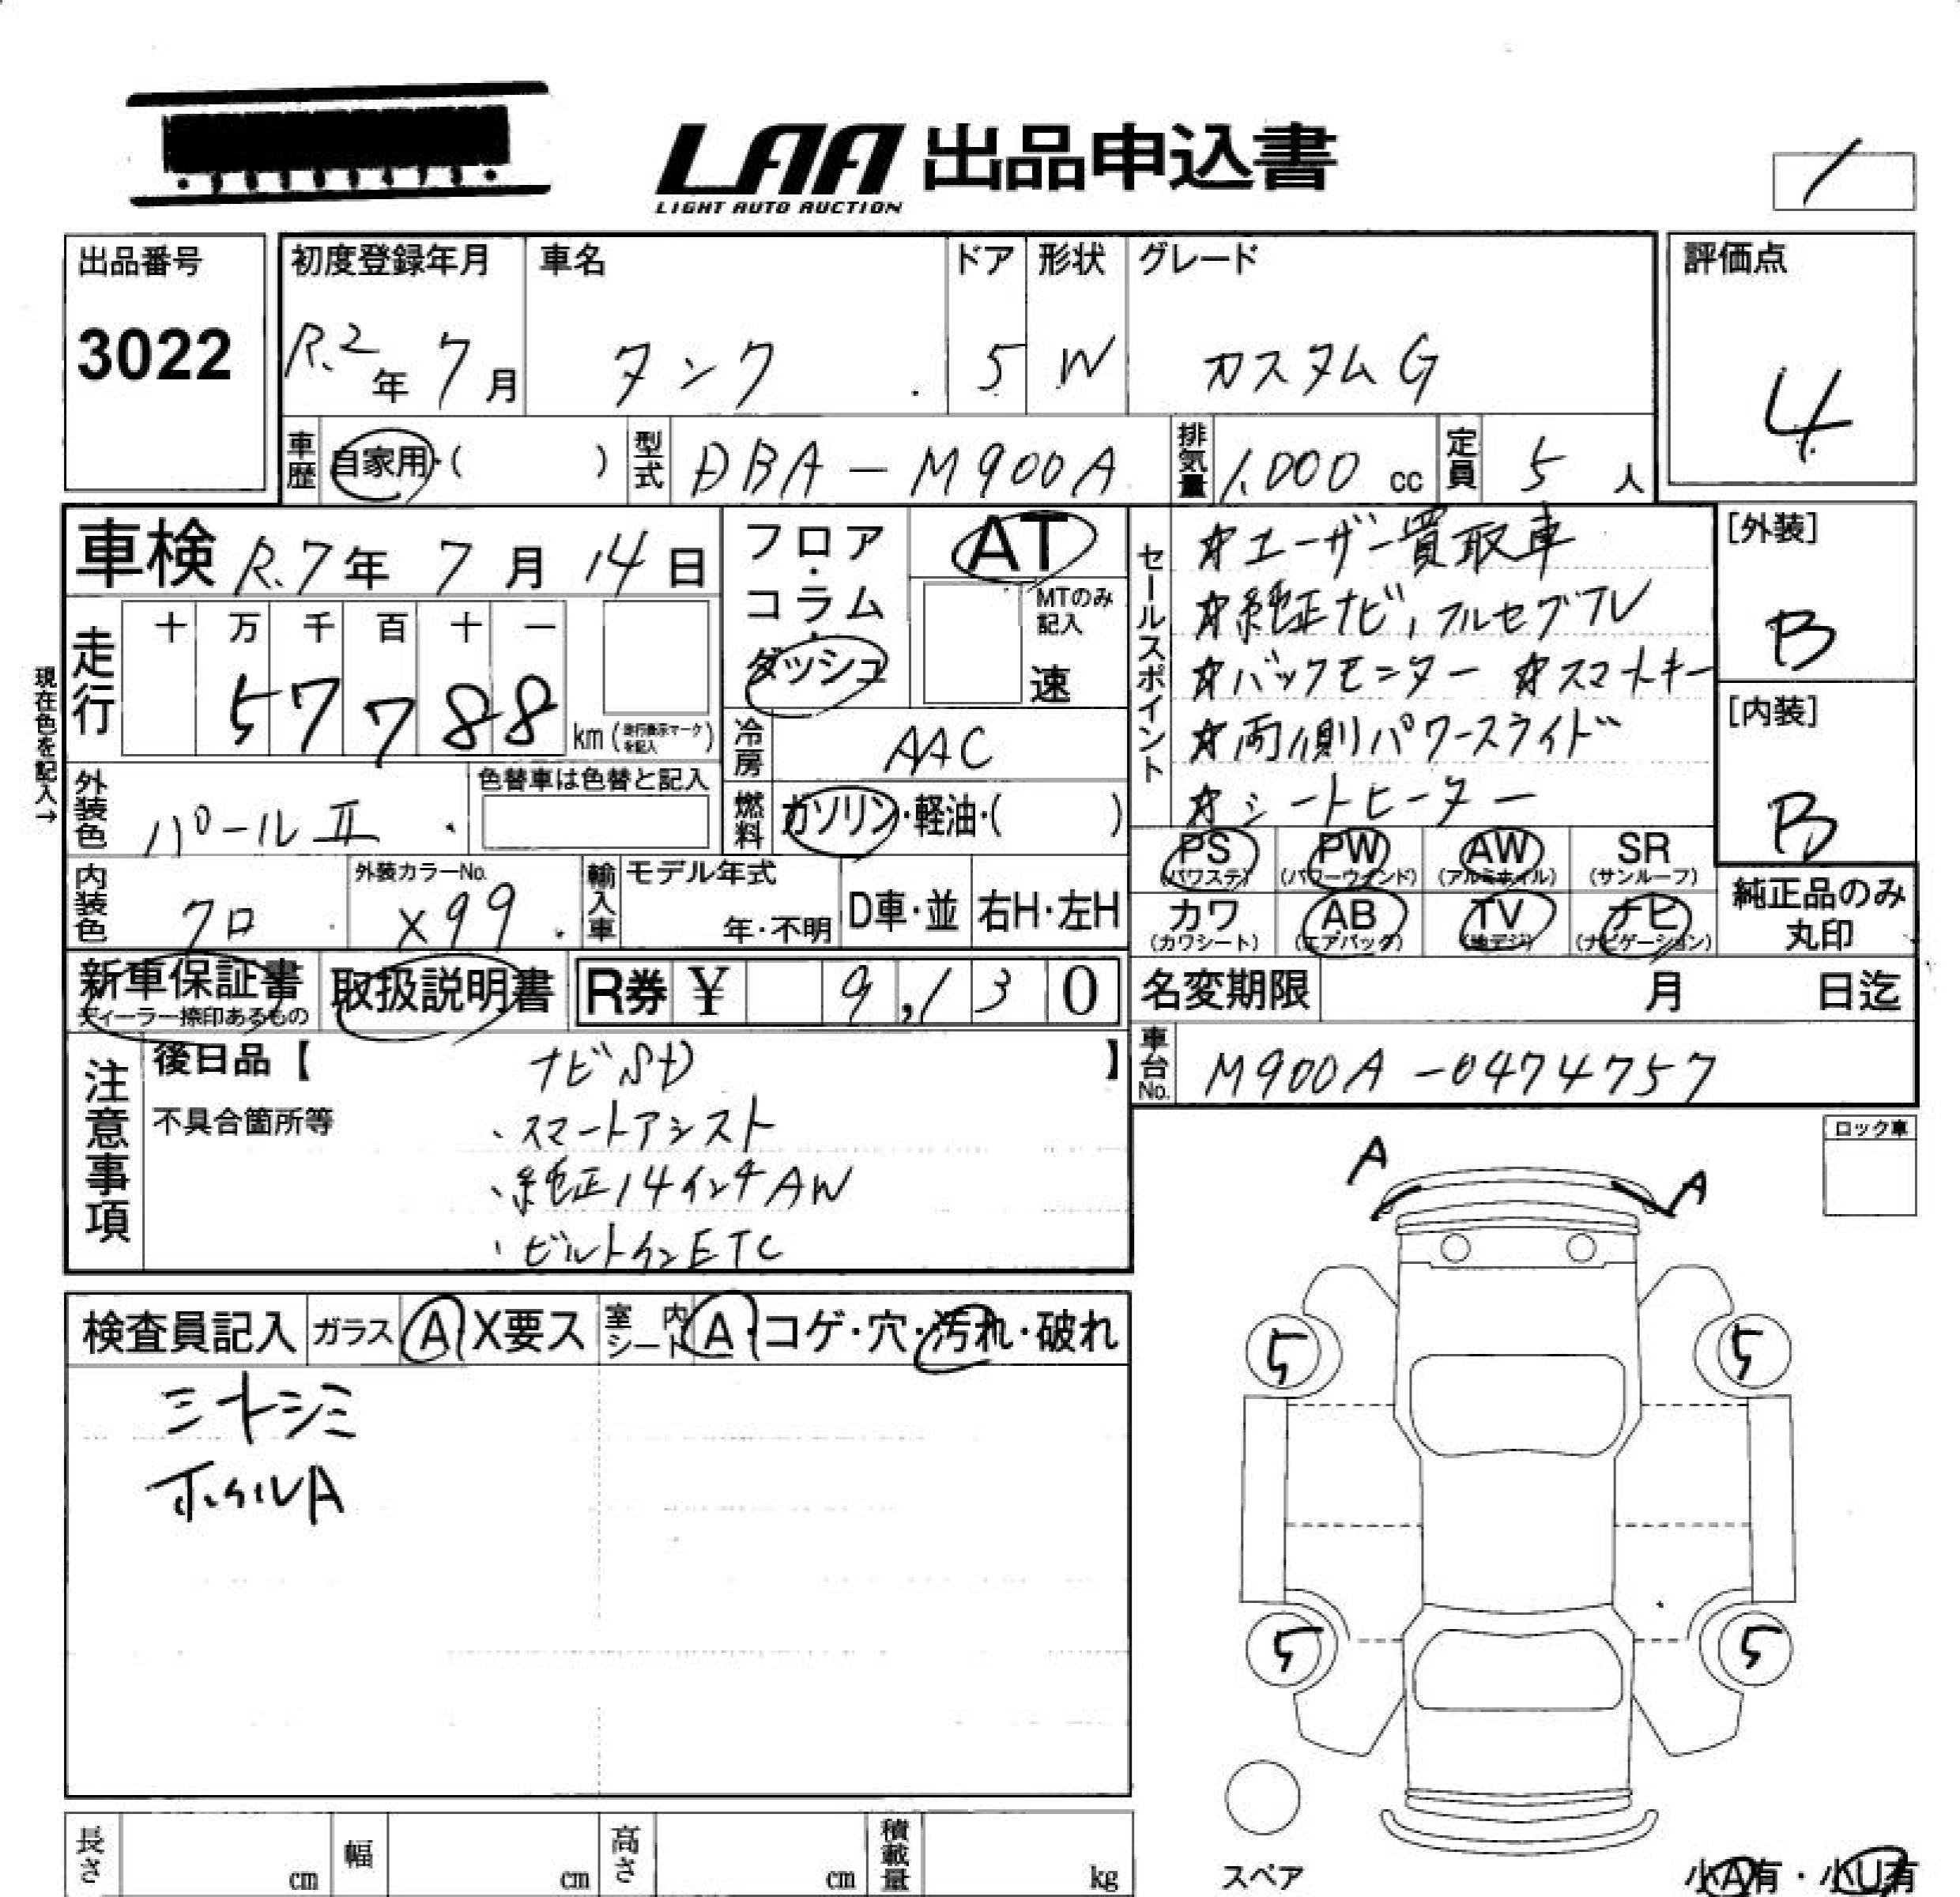 LAA 出品申込書
LIGHT AUTO AUCTION
出品番号
3022
初度登録年月
R.2年 7月
車名
タンク
ドア
5
形状
W
グレード
カスタムG
評価点
4
車歴
自家用・( )
型式
DBA-M900A
排気量
1,000 cc
定員
5人
車検 R.7年 7月 14日
走行
十 万 千 百 十 一
5 7 7 8 8 km (走行表示マークを記入)
現在色を記入→
外装色
パールⅡ
色替車は色替と記入
内装色
クロ
外装カラーNo.
X99
フロア・コラム・ダッシュ
AT
MTのみ記入
速
冷房
AAC
燃料
ガソリン・軽油・( )
輸入車
モデル年式
年・不明
D車・並
右H・左H
セールスポイント
☆ユーザー買取車
☆純正ナビ,フルセグTV
☆バックモニター ☆スマートキー
☆両側パワースライド
☆シートヒーター
[外装]
B
[内装]
B
PS (パワステ)
PW (パワーウインド)
AW (アルミホイル)
SR (サンルーフ)
カワ (カワシート)
AB (エアバック)
TV (地デジ)
ナビ (ナビゲーション)
純正品のみ丸印
新車保証書
ディーラー捺印あるもの
取扱説明書
R券 ¥ 9,130
名変期限 月 日迄
車台No.
M900A-0474757
注意事項
後日品【 ナビSD 】
不具合箇所等
、スマートアシスト
、純正14インチAW
、ビルトインETC
検査員記入
ガラス A X要ス
室内シート A・コゲ・穴・汚れ・破れ
シートシミ
ホイルA
ロック車
A A
5 5
5 5
スペア
小A有・小U有
長さ cm
幅 cm
高さ cm
積載量 kg